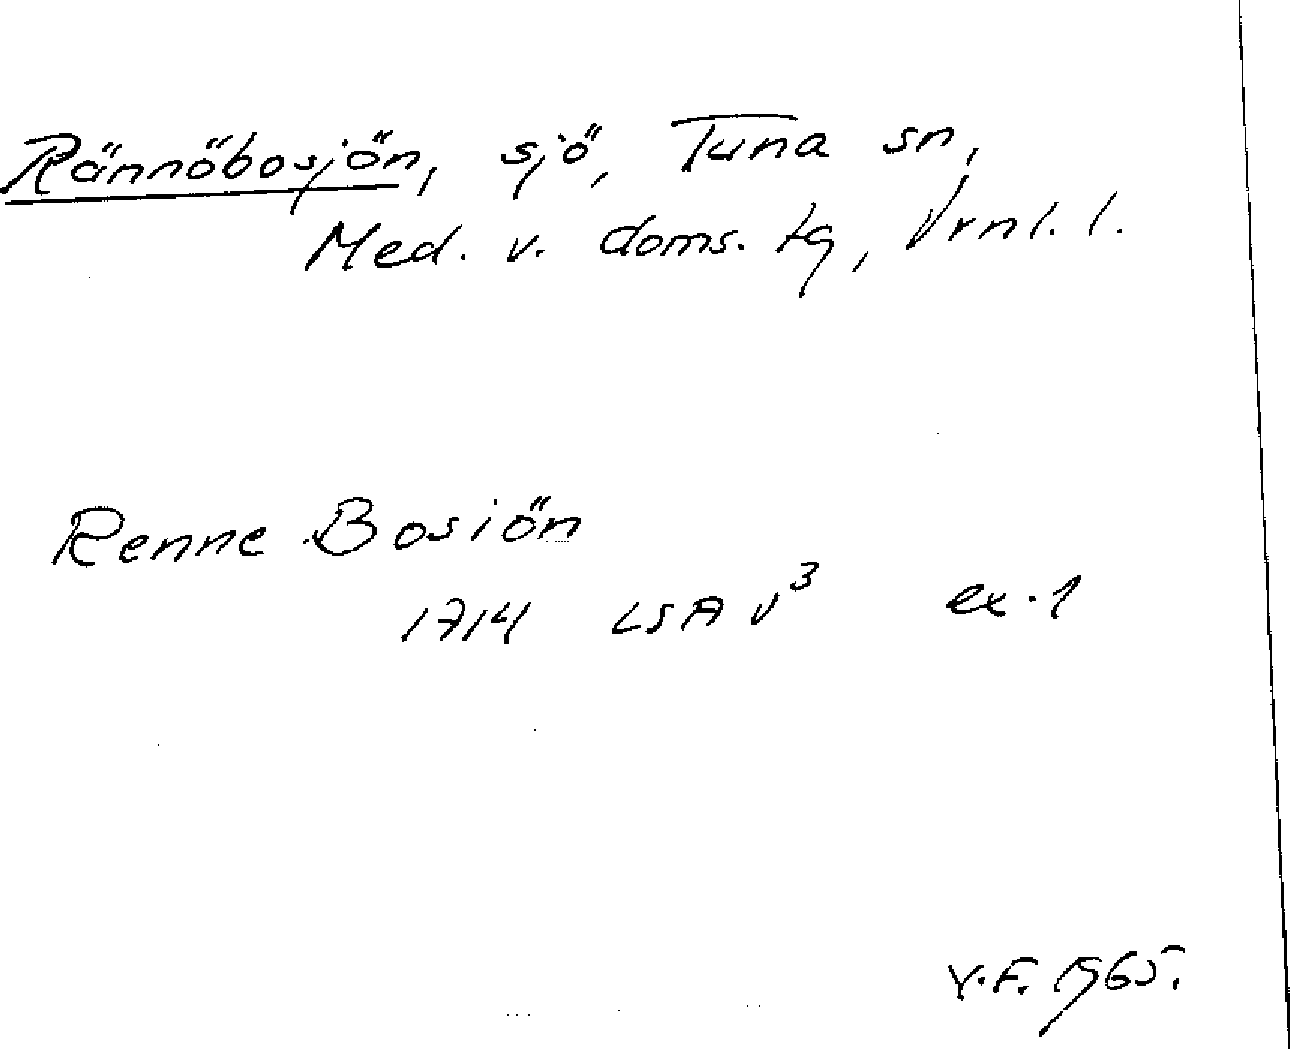 Rännöbosjön, sjö, Tuna sn,
Med. v. doms. tg, Vrnl. l.
Renne Bosiön
1714 LSA V³ ex. 1
V.F. 1965.